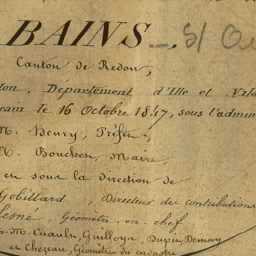 BAINS _ S/ Ou
Canton de Redon,
on, Département d'Ille et Vila
le 16 Octobre 1847, sous l'admin
M. Henry, Préfet,
M. Bouchson, Maire,
et sous la direction de
Gobillard, Directeur des contributions
Géomètre en chef
M. Guillou, Dupin, Demay
et Chezeau, Géomètres du cadastre